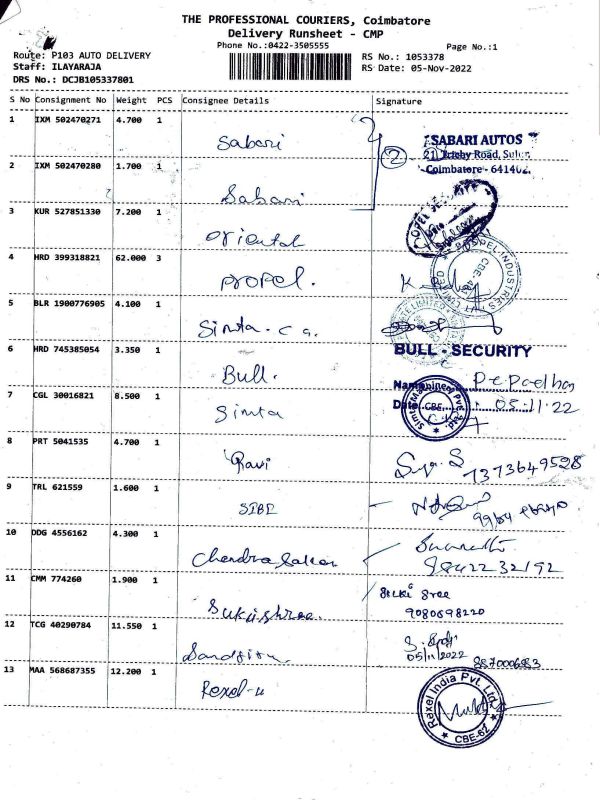 THE PROFESSIONAL COURIERS, Coimbatore
Delivery Runsheet - CMP
Phone No.:0422-3505555
Page No.:1
Route: P103 AUTO DELIVERY
Staff: ILAYARAJA
DRS No.: DCJB105337801
RS No.: 1053378
RS Date: 05-Nov-2022
S No Consignment No Weight PCS Consignee Details Signature
1 IXM 502470271 4.700 1 Sabari
2 SABARI AUTOS
21, Trichy Road, Sulur,
Coimbatore - 641402.
2 IXM 502470280 1.700 1 Sabari
3 KUR 527851330 7.200 1 Oriental
4 HRD 399318821 62.000 3 Propel.
PROPEL INDUSTRIES
5 BLR 1900776905 4.100 1 Simta - c a.
6 HRD 745385054 3.350 1 Bull. BULL - SECURITY
Name
Date : 05.11.22
7 CGL 30016821 8.500 1 Simta
CBE
8 PRT 5041535 4.700 1 Ravi
7373649528
9 TRL 621559 1.600 1 SIBI
10 DDG 4556162 4.300 1 Chandrasakar
9842232192
11 CMM 774260 1.900 1 Sukiishree.
Sree
9080698220
12 TCG 40290784 11.550 1
05/11/2022
887000683
13 MAA 568687355 12.200 1 Rexel-u
Rexel India Pvt. Ltd.
CBE-62